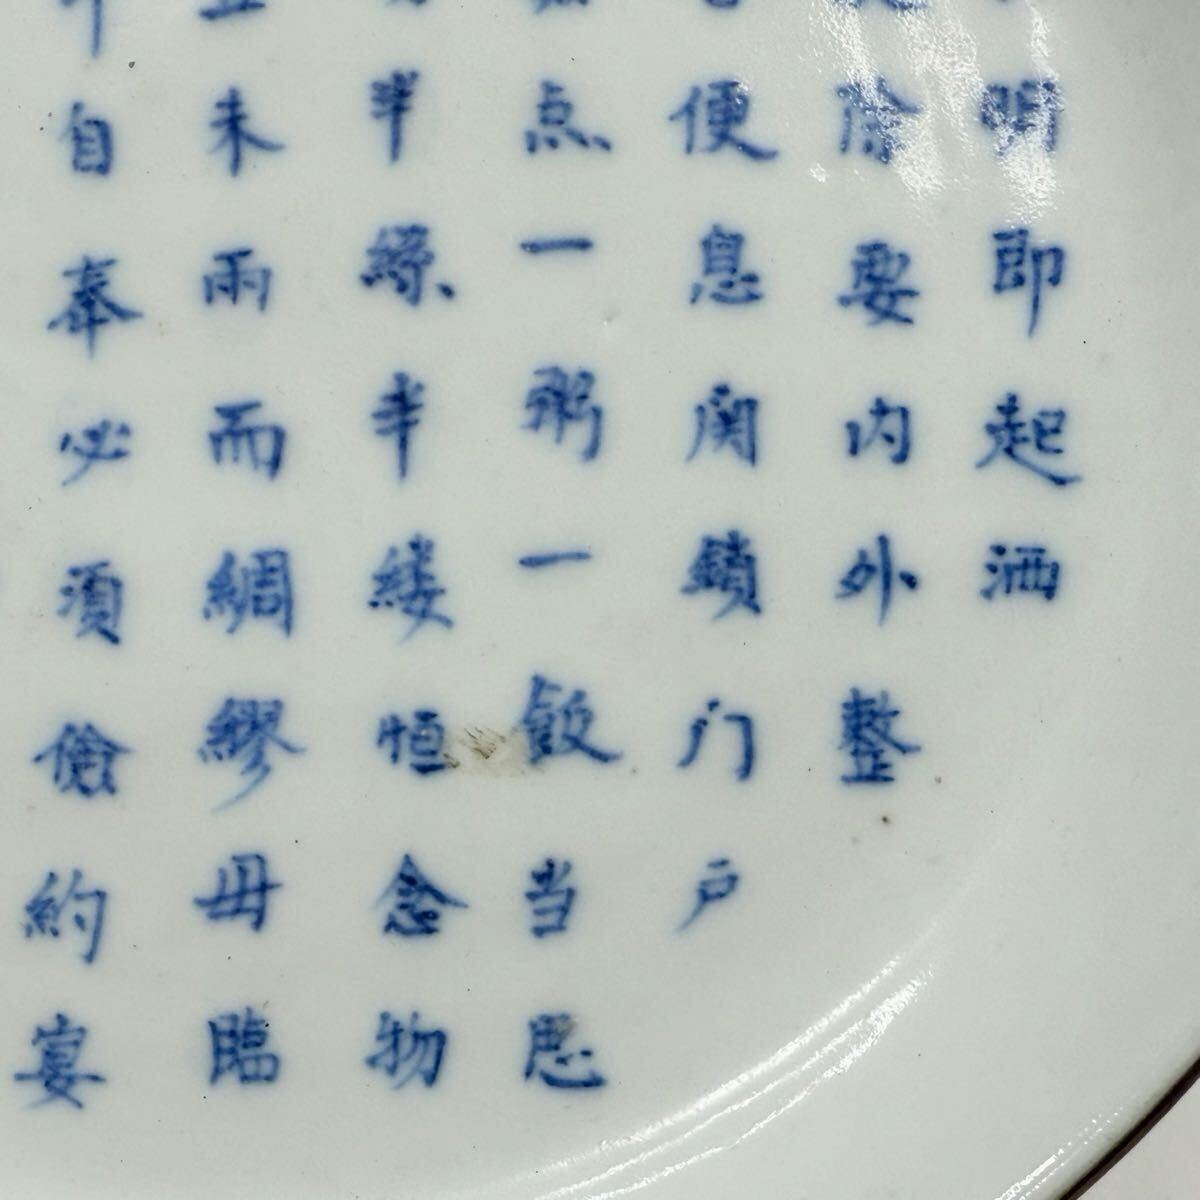 明即起洒
除要内外整
便息関鎖门户
点一粥一飯当思
半絲半縷恒念物
未雨而綢繆毋臨
自奉必須儉約宴